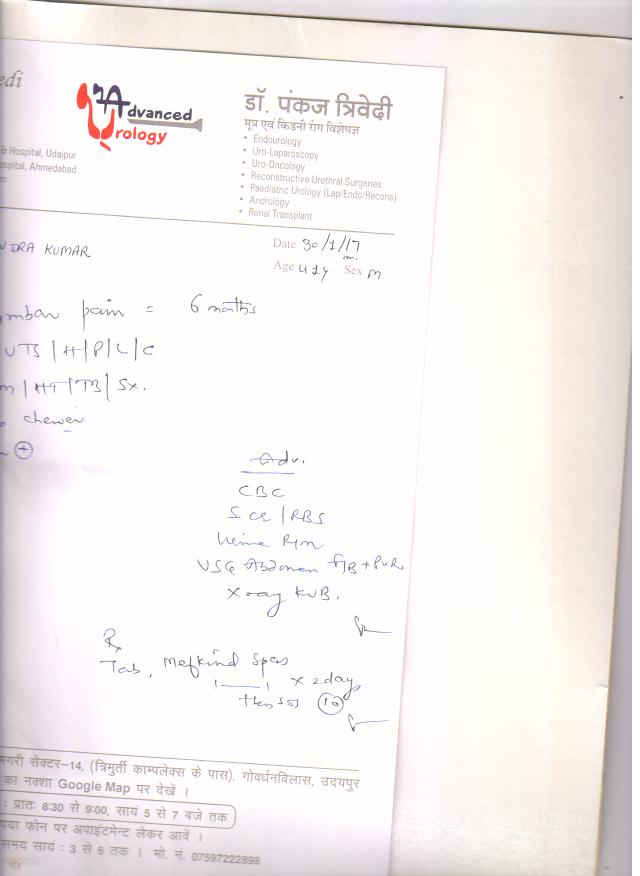 edi
Advanced
Urology
डॉ. पंकज त्रिवेदी
मूत्र एवं किडनी रोग विशेषज्ञ
• Endourology
• Uro-Laparoscopy
• Uro-Oncology
• Reconstructive Urethral Surgeries
• Paediatric Urology (Lap/Endo/Recons)
• Andrology
• Renal Transplant
& Hospital, Udaipur
ospital, Ahmedabad
NDRA KUMAR
Date 30/1/17
Age 41y Sex M
mbar pain = 6 months
UTS | H | P | L | C
m | HT | TB | Sx.
chewer
+
Adv.
CBC
S. cr | RBS
Urine R/m
USG Abdomen + PVR
X-ray KUB.
Rx
Tab. Mefkind Spas
1—1 x 2 days
then SOS 10
नगरी सेक्टर–14, (त्रिमुर्ती काम्पलेक्स के पास), गोवर्धनविलास, उदयपुर
का नक्शा Google Map पर देखें ।
: प्रातः 8:30 से 9:00, सायं 5 से 7 बजे तक
पया फोन पर अपाइंटमेन्ट लेकर आवें ।
समय सायं : 3 से 6 तक । मो. नं. 07597222898